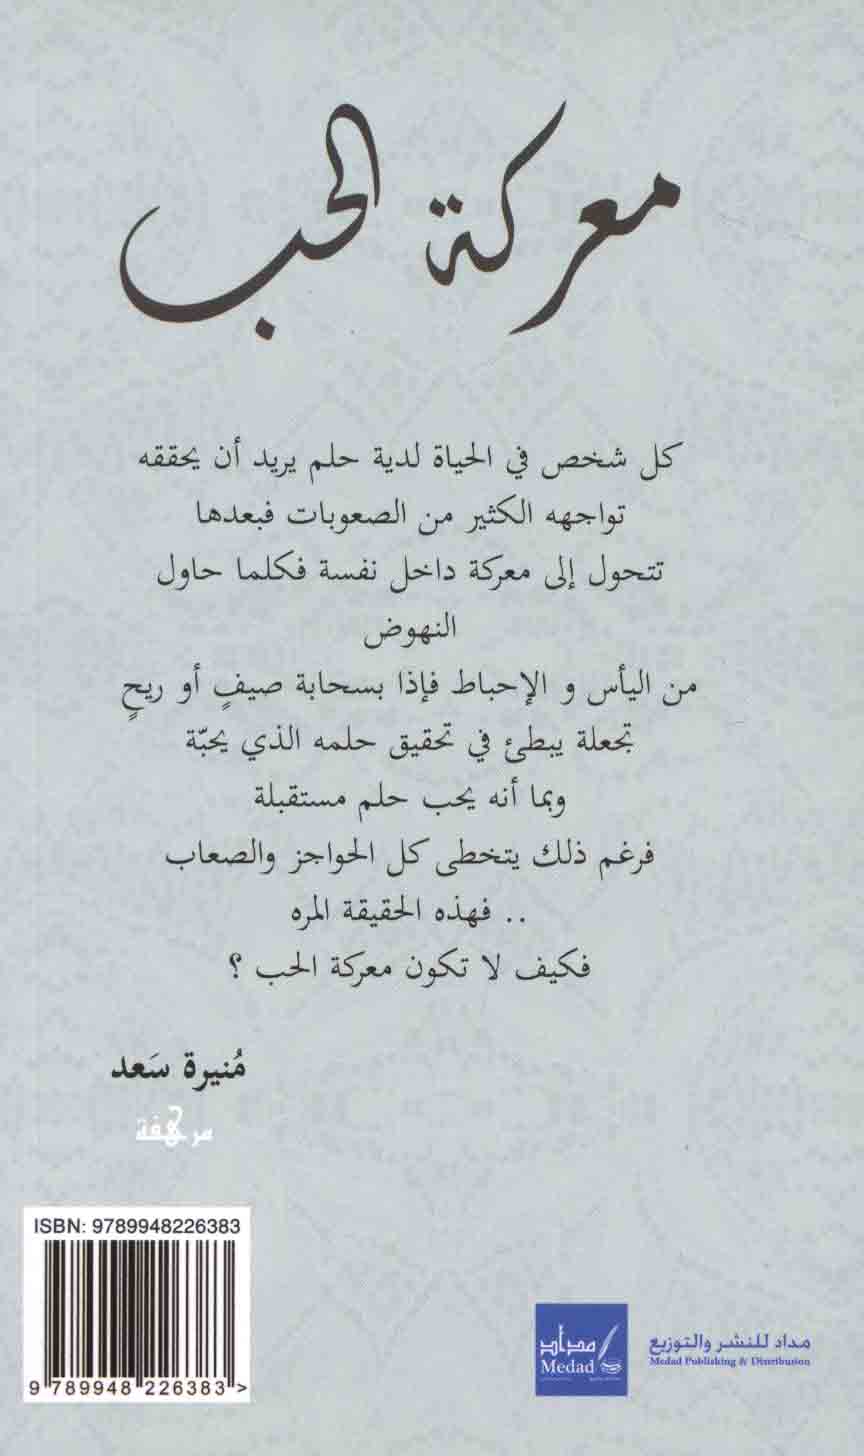 معركة الحب
كل شخص في الحياة لدية حلم يريد أن يحققه
تواجهه الكثير من الصعوبات فبعدها
تتحول إلى معركة داخل نفسة فكلما حاول
النهوض
من اليأس و الإحباط فإذا بسحابة صيفٍ أو ريحٍ
تجعلة يبطئ في تحقيق حلمه الذي يحبّة
وبما أنه يحب حلم مستقبلة
فرغم ذلك يتخطى كل الحواجز والصعاب
.. فهذه الحقيقة المره
فكيف لا تكون معركة الحب ؟
مُنيرة سَعد
مرهفة
ISBN: 9789948226383
9 789948 226383 >
مداد
Medad
مداد للنشر والتوزيع
Medad Publishing & Distribution